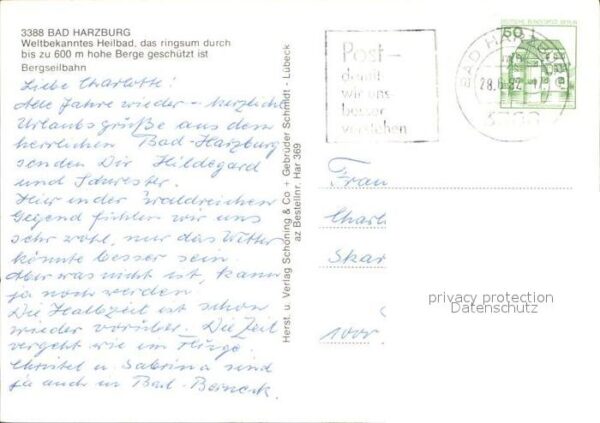 3388 BAD HARZBURG
Weltbekanntes Heilbad, das ringsum durch
bis zu 600 m hohe Berge geschützt ist
Bergseilbahn
Liebe Charlotte!
Alle Jahre wieder - herzliche
Urlaubsgrüße aus dem
herrlichen Bad-Harzburg
senden Dir Hildegard
und Schwester.
Hier in der waldreichen
Gegend fühlen wir uns
sehr wohl, nur das Wetter
könnte besser sein.
Aber was nicht ist, kann
ja noch werden.
Die Halbzeit ist schon
wieder vorüber. Die Zeit
vergeht wie im Fluge.
Christel u. Sabrina sind
ja auch in Bad-Berneck.
Herst. u. Verlag Schöning & Co + Gebrüder Schmidt - Lübeck
az Bestellnr. Har 369
Post-
damit
wir uns
besser
verstehen
BAD HARZBURG
28.6.82
DEUTSCHE BUNDESPOST BERLIN
50
Frau
Charl
Skar
100
privacy protection
Datenschutz